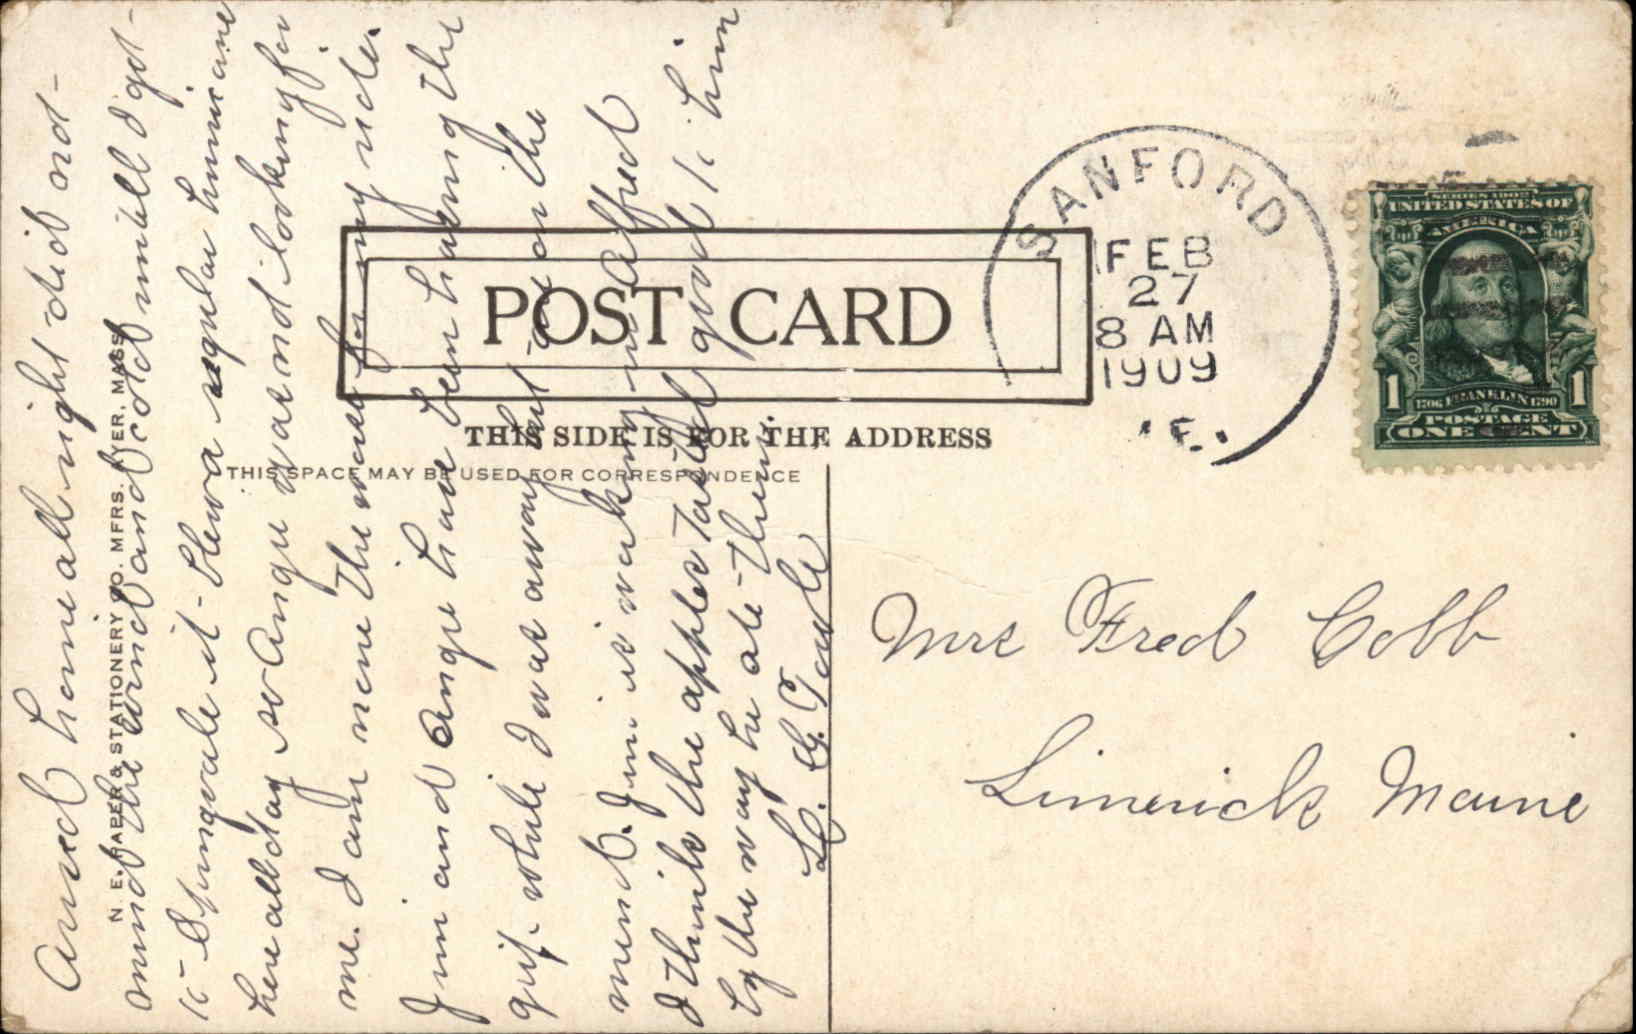 POST CARD
THIS SIDE IS FOR THE ADDRESS
THIS SPACE MAY BE USED FOR CORRESPONDENCE
N. E. PAPER & STATIONERY CO. MFRS. AYER, MASS.
SANFORD
FEB
27
8 AM
1909
SERIES 1902
UNITED STATES OF
AMERICA
1706 FRANKLIN 1790
1 1
POSTAGE
ONE CENT
Mrs Fred Cobb
Limerick Maine
Arived home all right did not
mind the wind and cold untill I got
to Springvale it blew a regular hurricane
here all day so Angie was not looking for
me. I am none the worse for my ride.
Jim and Angie have been having the
grip while I was away but are on the
mend. Jim is working in Alfred
I think the apples tasted good to him
by the way he ate them.
L. G. Towle